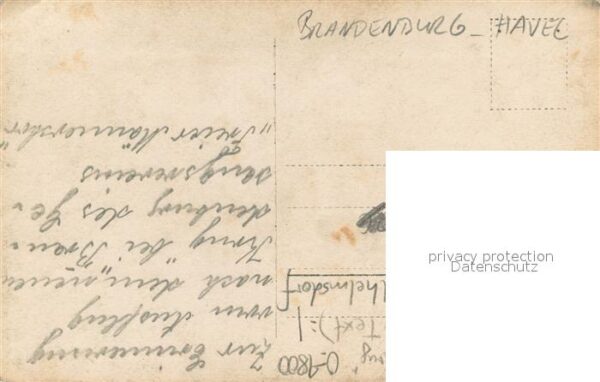 BRANDENBURG - HAVEL
Zur Erinnerung
vom Ausflug
nach dem "neuen
Krug" bei Bran-
denburg des Ge-
sangsvereins
"Freier Männerchor"
privacy protection
Datenschutz
helmsdorf
Text) =
0-1800